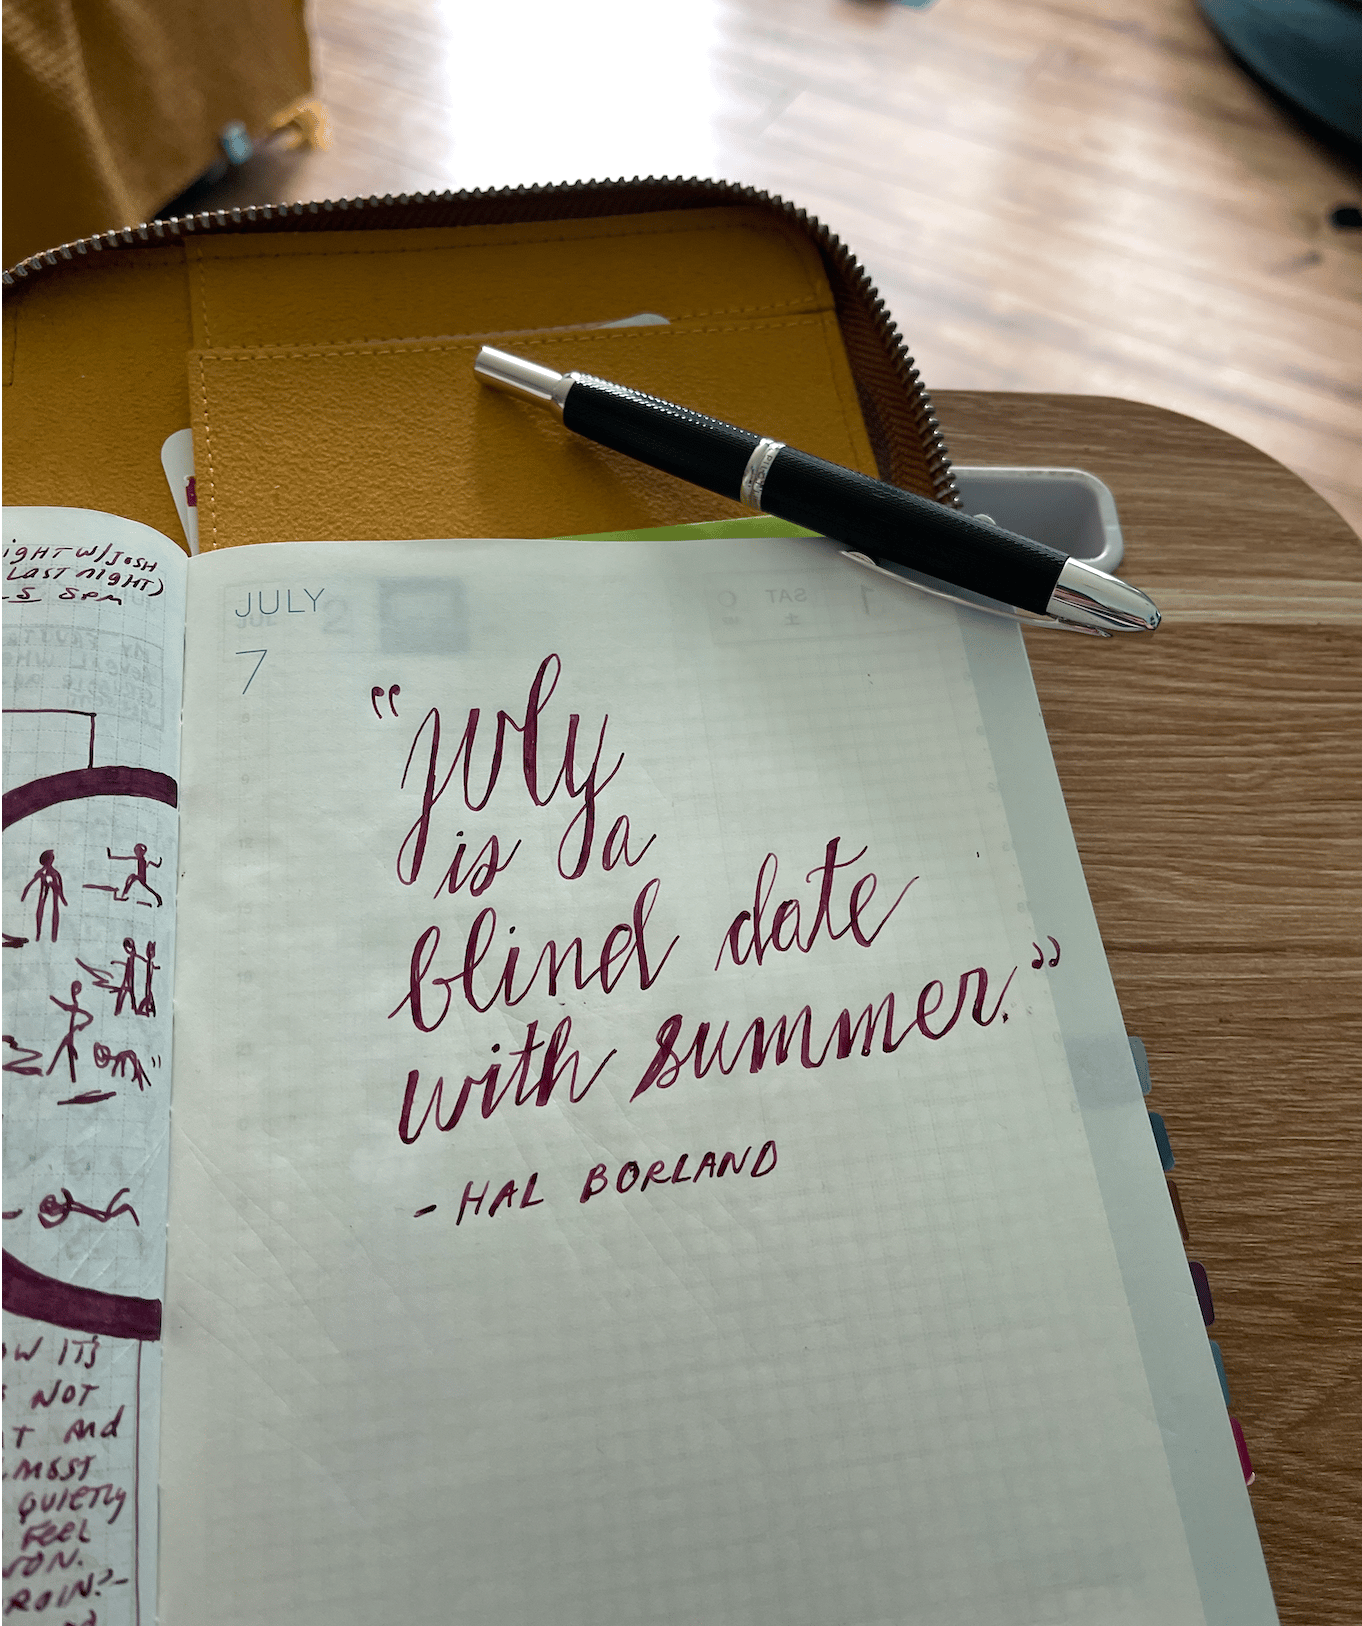 ight w/ Josh
Last night)
5 8pm
JULY
7
"July
is a
blind date
with summer."
- HAL BORLAND
ow it's
not
t and
most
quietly
feel